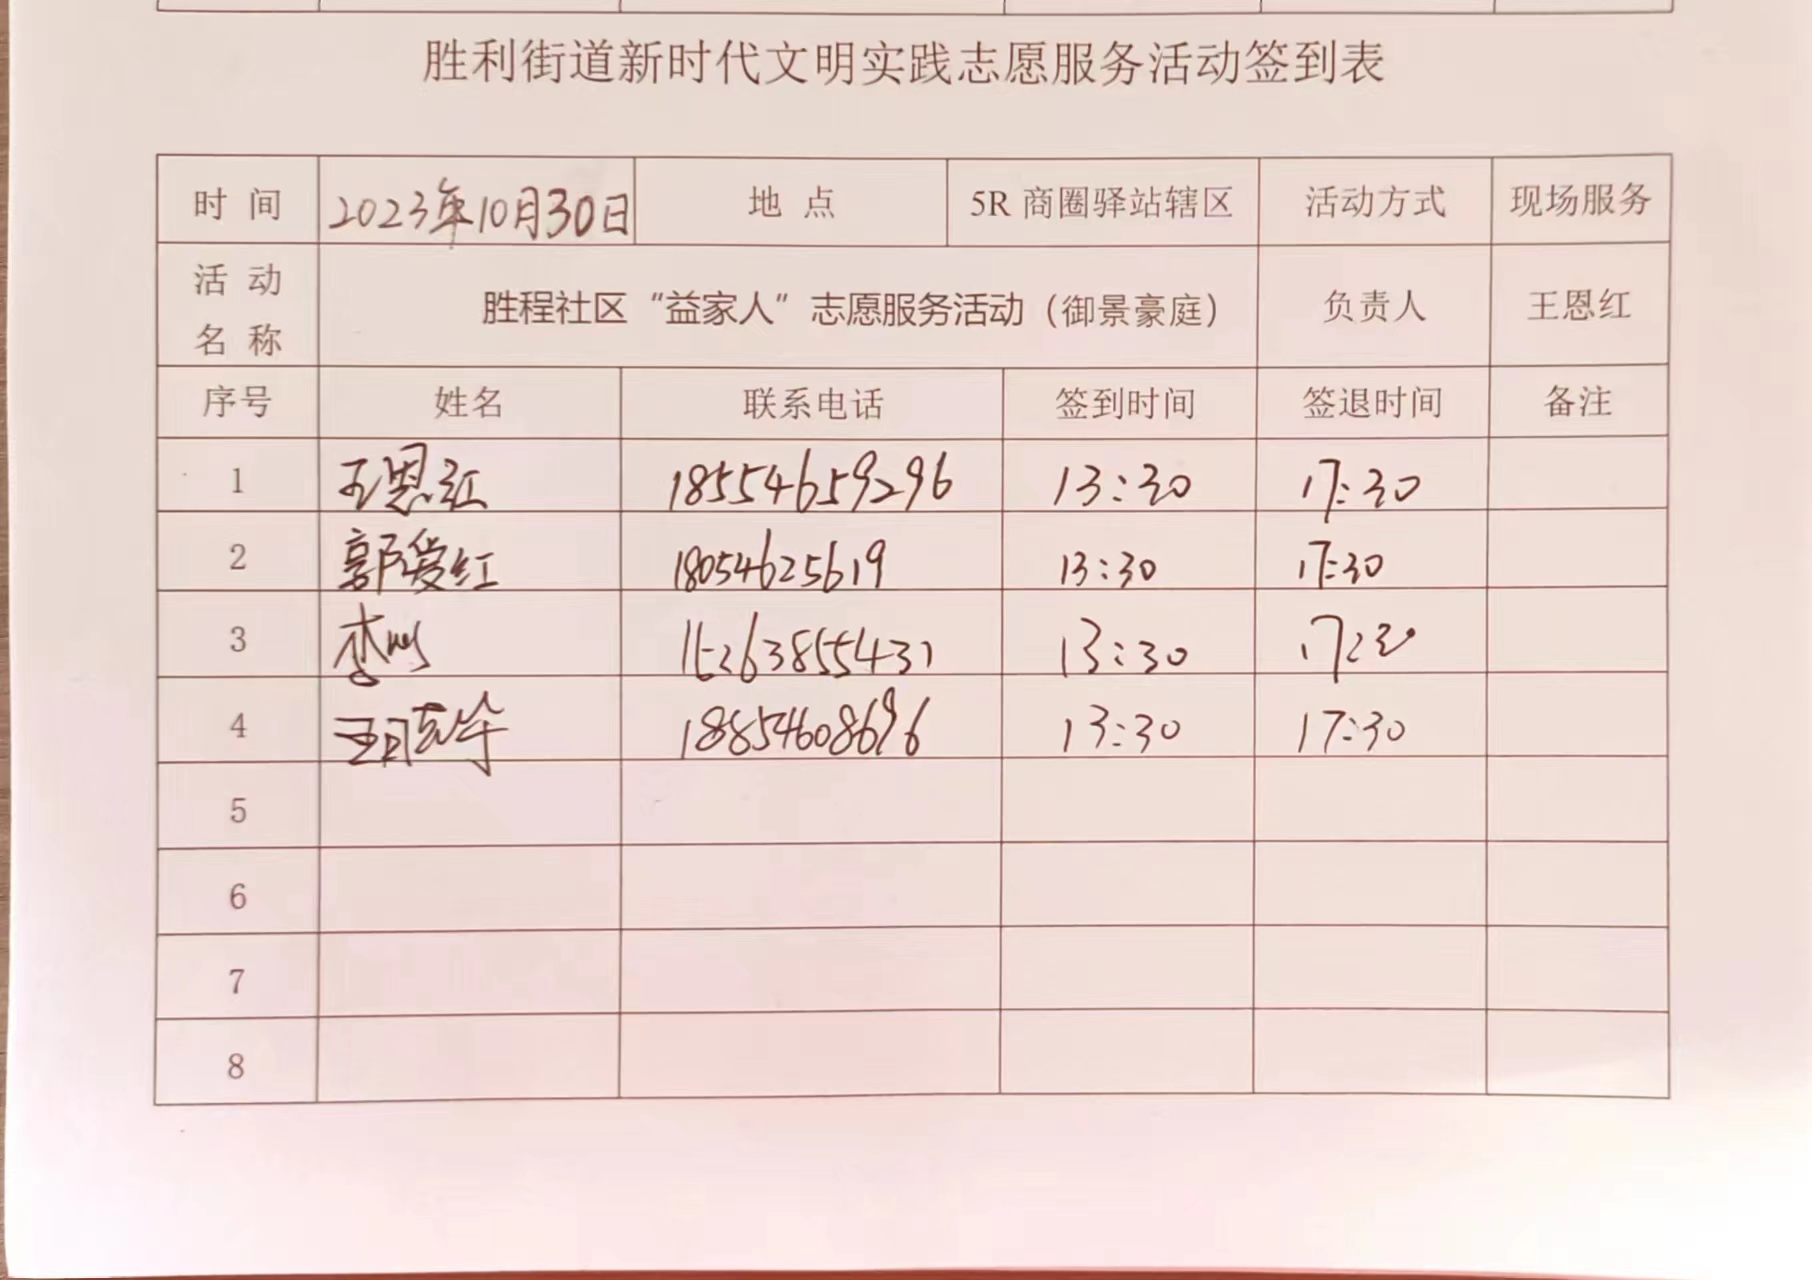 胜利街道新时代文明实践志愿服务活动签到表
时 间 2023年10月30日 地 点 5R 商圈驿站辖区 活动方式 现场服务
活 动 名 称 胜程社区“益家人”志愿服务活动（御景豪庭） 负责人 王恩红
序号 姓名 联系电话 签到时间 签退时间 备注
1 王恩红 18554659296 13:30 17:30
2 郭爱红 18054625619 13:30 17:30
3 李 15263855431 13:30 17:30
4 18854608696 13:30 17:30
5
6
7
8